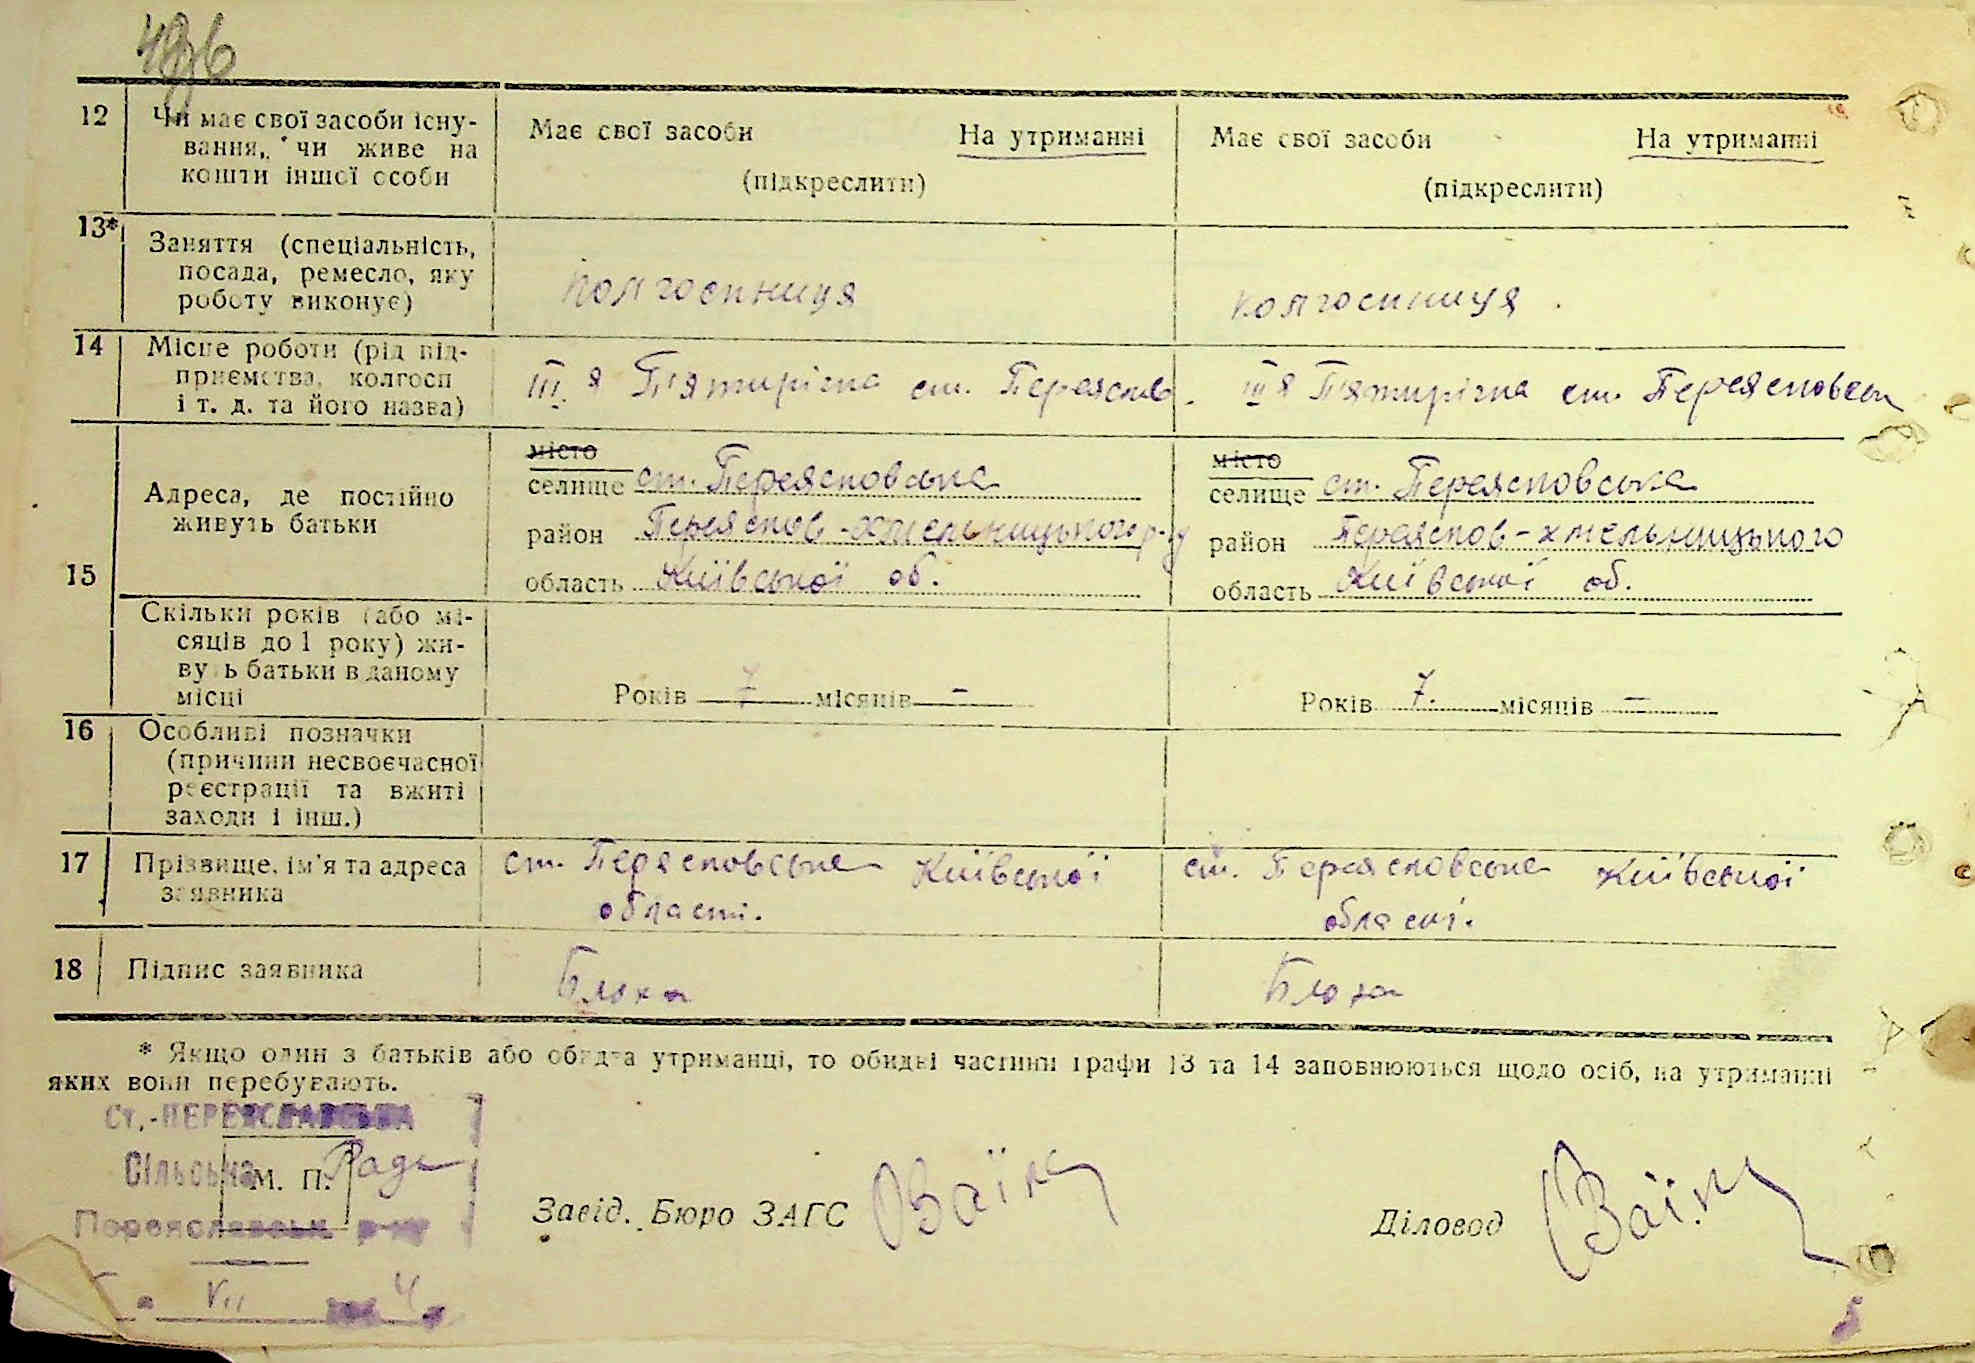 12
Чи має свої засоби існу-
вання, чи живе на
кошти іншої особи
Має свої засоби На утриманні
(підкреслити)
Має свої засоби На утриманні
(підкреслити)
13*
Заняття (спеціальність,
посада, ремесло, яку
роботу виконує)
колгоспниця
колгоспниця
14
Місце роботи (рід під-
приємства, колгосп
і т. д. та його назва)
III-я П'ятирічка ст. Переяслов.
III я П'ятирічка ст. Переясловськ
15
Адреса, де постійно
живуть батьки
місто
селище ст. Переясловська
район Переяслов-хмельницького р-ну
область Київської об.
місто
селище ст. Переясловська
район Переяслов-хмельницького
область Київської об.
Скільки років (або мі-
сяців до 1 року) жи-
вуть батьки в даному
місці
Років 7 місяців –
Років 7. місяців –
16
Особливі позначки
(причини несвоєчасної
реєстрації та вжиті
заходи і інш.)
17
Прізвище, ім'я та адреса
заявника
ст. Переясловська Київської
області.
ст. Переясловська Київської
області.
18
Підпис заявника
Блоха
Блоха
* Якщо один з батьків або обидва утриманці, то обидві частини графи 13 та 14 заповнюються щодо осіб, на утриманні
яких вони перебувають.
Ст.-ПЕРЕЯСЛАВСЬКА
Сільська Рада
М. П.
Переяславськ р-ну
VII 4
Завід. Бюро ЗАГС
Діловод